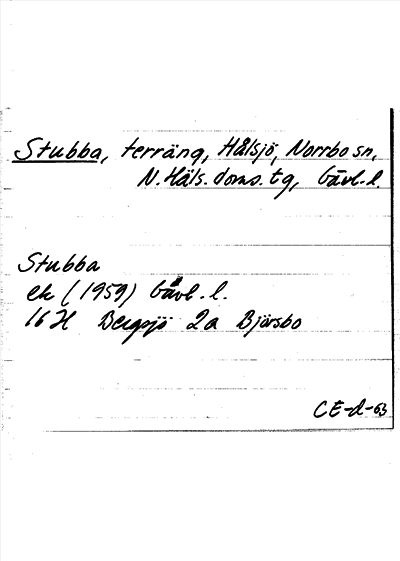 Stubba, terräng, Hålsjö, Norrbo sn,
N. Häls. doms. tg, Gävl. l.
Stubba
ek (1959) Gävl. l.
16 H Bergsjö 2a Bjåsbo
CE-d-63